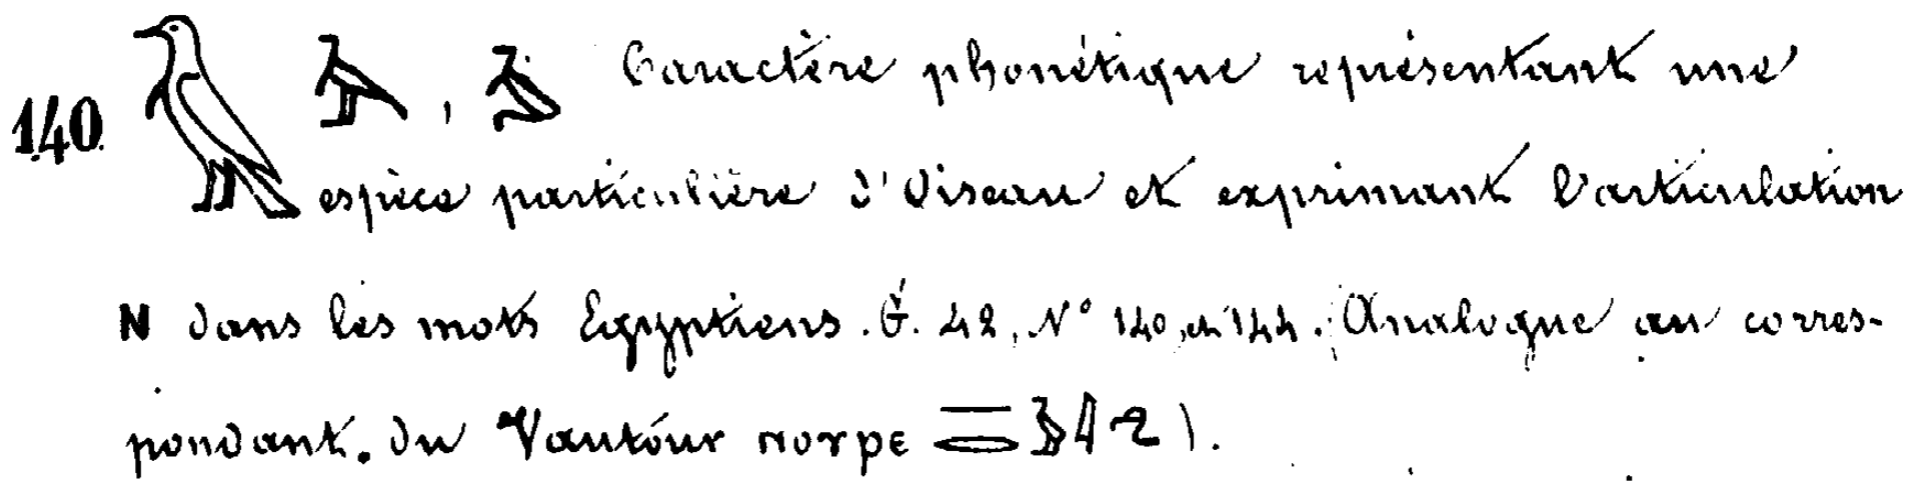 140. 𓅐 , Caractère phonétique représentant une
espèce particulière d'Oiseau et exprimant l'articulation
N dans les mots Egyptiens. G. 42, N° 140, et 144. Analogue au corres-
pondant. du Vautour ⲛⲟⲩⲣⲉ ).